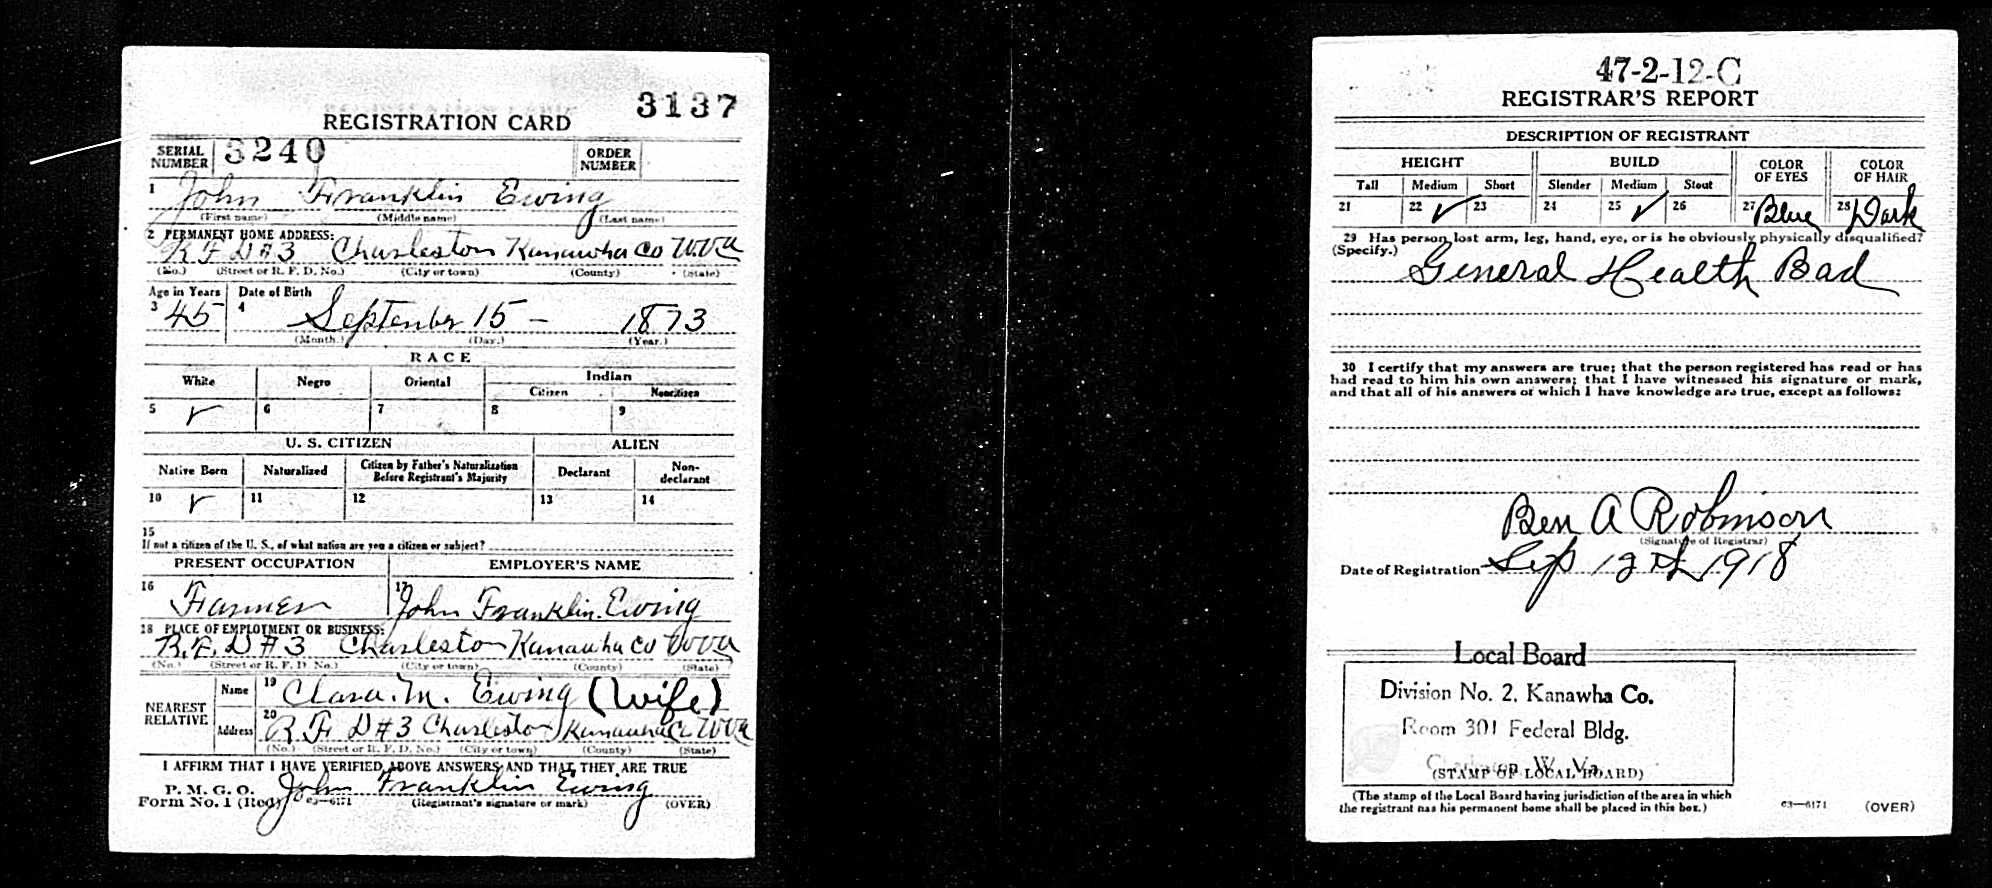 3137
REGISTRATION CARD
SERIAL NUMBER 3240 ORDER NUMBER
1 John Franklin Ewing
(First name) (Middle name) (Last name)
2 PERMANENT HOME ADDRESS:
R F D #3 Charleston Kanawha Co W.Va
(No.) (Street or R. F. D. No.) (City or town) (County) (State)
Age in Years Date of Birth
3 45 4 September 15 - 1873
(Month.) (Day.) (Year.)
RACE
White Negro Oriental Indian
Citizen Noncitizen
5 ✓ 6 7 8 9
U. S. CITIZEN ALIEN
Native Born Naturalized Citizen by Father's Naturalization Before Registrant's Majority Declarant Non-declarant
10 ✓ 11 12 13 14
15
If not a citizen of the U. S., of what nation are you a citizen or subject?
PRESENT OCCUPATION EMPLOYER'S NAME
16 Farmer 17 John Franklin Ewing
18 PLACE OF EMPLOYMENT OR BUSINESS:
R.F.D #3 Charleston Kanawha Co W.Va
(No.) (Street or R. F. D. No.) (City or town) (County) (State)
NEAREST RELATIVE Name 19 Clara. M. Ewing (Wife)
Address 20 R F D #3 Charleston Kanawha Co W Va
(No.) (Street or R. F. D. No.) (City or town) (County) (State)
I AFFIRM THAT I HAVE VERIFIED ABOVE ANSWERS AND THAT THEY ARE TRUE
P. M. G. O.
Form No. 1 (Red) 03—6171 John Franklin Ewing
(Registrant's signature or mark) (OVER)
47-2-12-C
REGISTRAR'S REPORT
DESCRIPTION OF REGISTRANT
HEIGHT BUILD COLOR OF EYES COLOR OF HAIR
Tall Medium Short Slender Medium Stout
21 22 ✓ 23 24 25 ✓ 26 27 Blue 28 Dark
29 Has person lost arm, leg, hand, eye, or is he obviously physically disqualified?
(Specify.) General Health Bad
30 I certify that my answers are true; that the person registered has read or has
had read to him his own answers; that I have witnessed his signature or mark,
and that all of his answers of which I have knowledge are true, except as follows:
Ben A Robinson
(Signature of Registrar)
Date of Registration Sep 12th 1918
Local Board
Division No. 2, Kanawha Co.
Room 301 Federal Bldg.
Charleston W. Va.
(STAMP OF LOCAL BOARD)
(The stamp of the Local Board having jurisdiction of the area in which
the registrant has his permanent home shall be placed in this box.)
03—6171 (OVER)